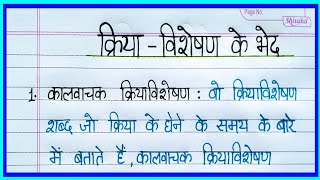 Page No.
क्रिया - विशेषण के भेद
1. कालवाचक क्रियाविशेषण : वो क्रियाविशेषण
शब्द जो क्रिया के होने के समय के बारे
में बताते हैं, कालवाचक क्रियाविशेषण